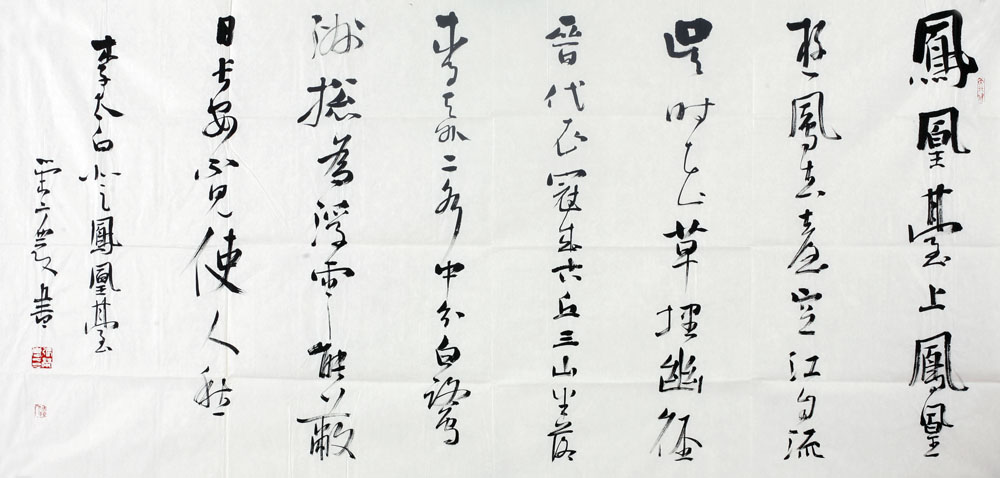 鳳凰臺上鳳凰
遊鳳去臺空江自流
吴时花草埋幽徑
晉代衣冠成古丘三山半落
青天外二水中分白鷺
洲總為浮雲能蔽
日長安不見使人愁
李太白登鳳凰臺
書